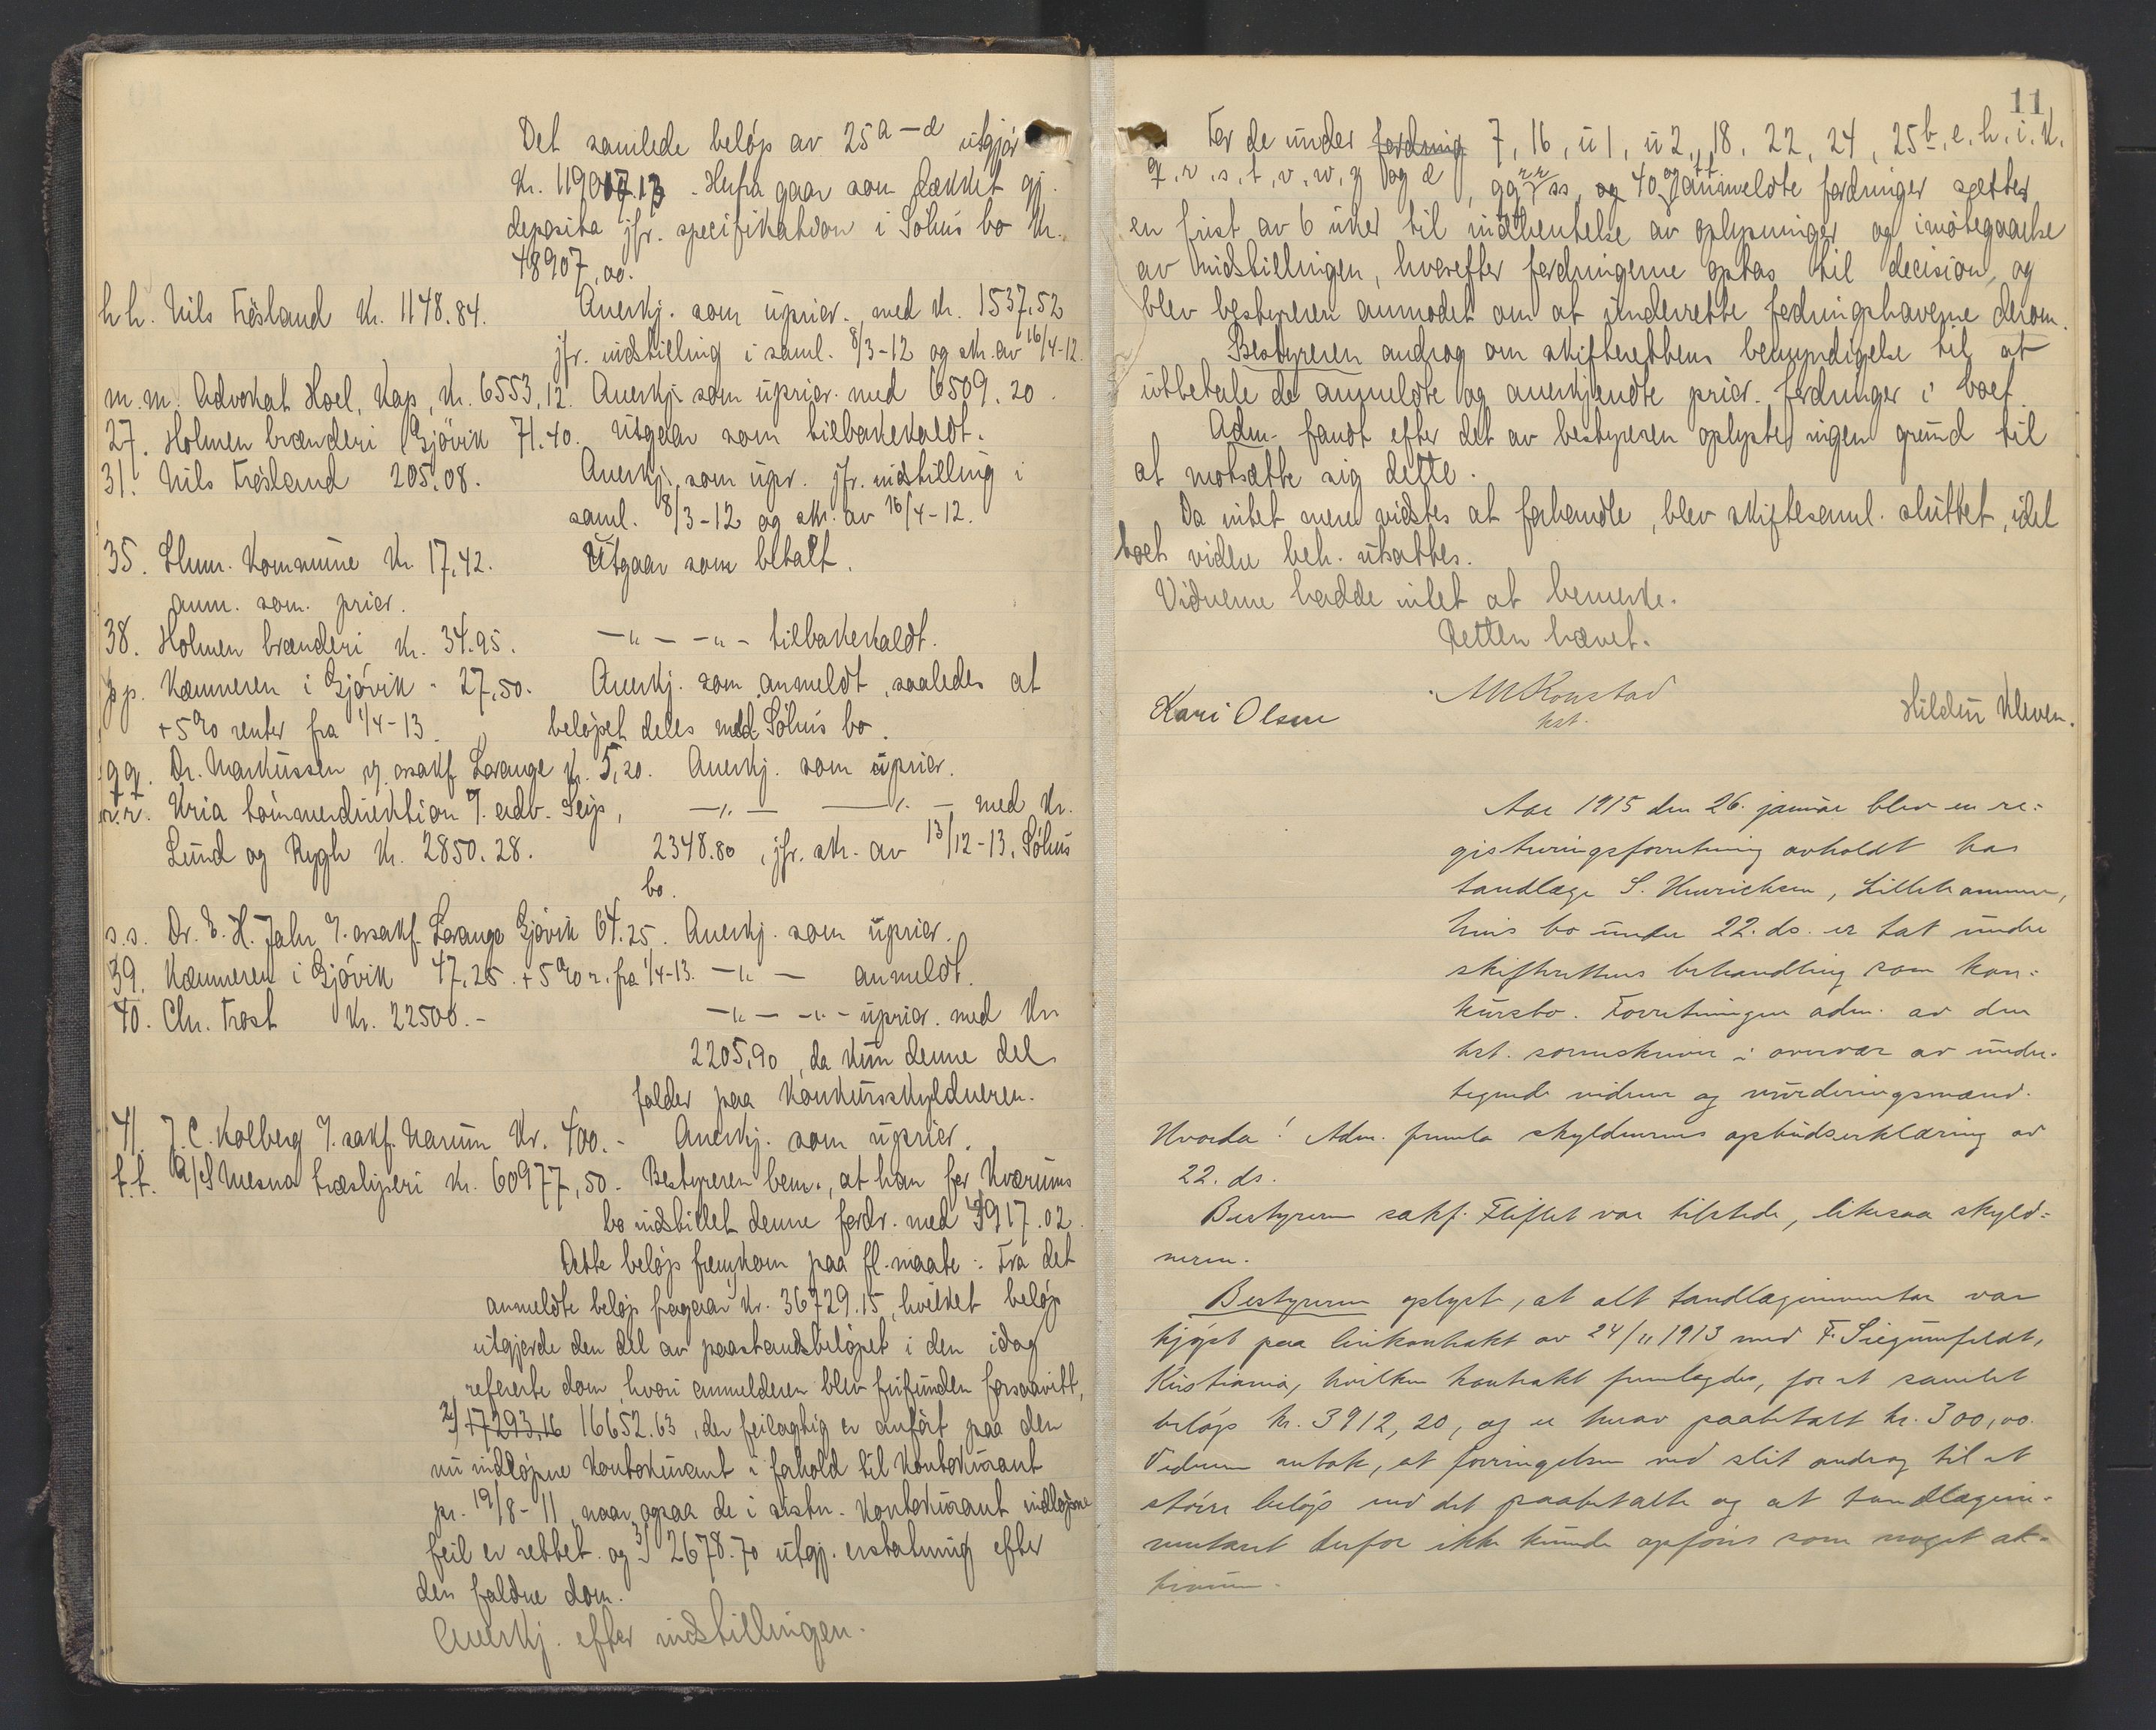 Det samlede beløp av 25 a-d utgjør
Kr. 119017.13. Herfra gaar som dækket gj.
deposita jfr. specifikation i Søhus bo Kr.
48907,00.
h h. Nils Frøsland Kr. 1148.84. Anerkj. som uprior. med Kr. 1537,52
jfr. indstilling i saml. 8/3-12 og skr. av 16/4-12.
m.m. Advokat Hoel, Kap, Kr. 6553,12. Anerkj. som uprior. med 6509.20.
27. Holmen brænderi Gjövik 71.40. Utgaar som tilbakekaldt.
31. Nils Frøsland 205.08. Anerkj. som upr. jfr. indstilling i
saml. 8/3-12 og skr. av 16/4-12.
35. Lhmr. Kommune Kr. 17,42. Utgaar som betalt.
anm. som. prior.
38. Holmen brænderi Kr. 34.95. -"- -"- tilbakekaldt.
pp. Kæmneren i Gjövik - 27,50. Anerkj. som anmeldt, saaledes at
+ 5% renter fra 1/4-13. beløpet deles med Søhus bo.
qq. Dr. Markussen v. orsakf. Lorange Kr. 5,20. Anerkj. som uprior.
r.r. Kria tømmerdirektion v. adv. Seip, -"- -"- med Kr.
Lund og Rygh Kr. 2850.28. 2348.80, jfr. skr. av 13/12-13. Søhus
bo.
s.s. Dr. E. H. Jahr v. orsakf. Lorange Gjövik 64.25. Anerkj. som uprior.
39. Kæmneren i Gjövik 47,25. + 5% r. fra 1/4-13. -"- anmeldt.
40. Chr. Frost Kr. 22500.- -"- -"- uprior. med Kr.
2205,90, da kun denne del
falder paa konkursskyldneren.
41. J. C. Kolberg v. sakf. Narum Kr. 400.- Anerkj. som uprior.
t.t. A/S Mesna træsliperi Kr. 60977,50. Bestyreren bem., at han for Kværums
bo indstillet denne fordr. med 3917.02.
Dette beløp fremkom paa fl. maate: Fra det
anmeldte beløp fragaar Kr. 36729.15, hvilket beløp
utgjorde den del av paastandsbeløpet i den idag
refererte dom, hvori anmelderen blev frifunden forsaavitt,
2) 17293,16 16652.63, der feilagtig er anført paa den
nu indløpne Kontokurant i forhold til Kontokurant
pr. 19/8-11, naar ogsaa de i sistn. Kontokurant indløpne
feil er rettet. og 3) 2678.70 utgj. erstatning efter
den faldne dom.
Anerkj. efter indstillingen.
11
For de under fordring 7, 16, u1, u2, 18, 22, 24, 25 b, e. h. i. k.
q, r, s, t, v, w, z og æ, qq, rr, ss, og 40 og tt anmeldte fordringer sættes
en frist av 6 uker til indhentelse av oplysninger og imøtegaaelse
av indstillingen, hvorefter fordringerne optas til decision, og
blev bestyreren anmodet om at underrette fordringshaverne derom.
Bestyreren androg om skifterettens bemyndigelse til at
utbetale de anmeldte og anerkjendte prior. fordringer i boet.
Adm. fandt efter det av bestyreren oplyste ingen grund til
at motsætte sig dette.
Da intet mere vidstes at forhandle, blev skiftesaml. sluttet, idet
boets videre beh. utsattes.
Vidnerne hadde intet at bemerke.
Retten hævet.
Kari Olsen
kst.
Hildur Kleven.
Aar 1915 den 26. januar blev en re-
gistreringsforretning avholdt hos
tandlæge S. Henrichsen, Lillehammer,
hvis bo under 22. ds. er tat under
skifterettens behandling som kon-
kursbo. Forretningen adm. av den
kst. sorenskriver i overvær av under-
tegnede vidner og vurderingsmænd.
Hvorda! Adm. fremla skyldnerens opbudserklæring av
22. ds.
Bestyreren sakf. Fliflet var tilstede, likesaa skyld-
neren.
Bestyreren oplyste, at alt tandlægeinventar var
kjøpt paa leiekontrakt av 24/11 1913 med F. Siegumfeldt,
Kristiania, hvilken kontrakt fremlagdes, for et samlet
beløp kr. 3912,20, og er herav paabetalt kr. 300,00.
Vidnerne antok, at forringelsen ved slit androg til et
større beløp end det paabetalte og at tandlægein-
ventaret derfor ikke kunde opføres som noget ak-
tivum.